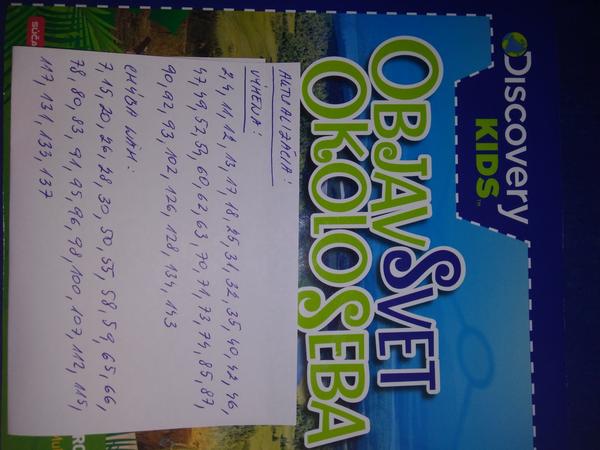 Discovery
KIDS™
OBJAV SVET
OKOLO SEBA
AKTUALIZÁCIA:
VÝMENA:
2,4,11,12,13,17,18,25,31,32,35,40,42,46,
47,49,52,54,60,62,63,70,71,73,74,85,87,
90,92,93,102,126,128,134,143
CHÝBA MÁM:
7,15,20,26,28,30,50,55,58,59,65,66,
78,80,83,91,95,96,98,100,107,112,115,
117,131,133,137